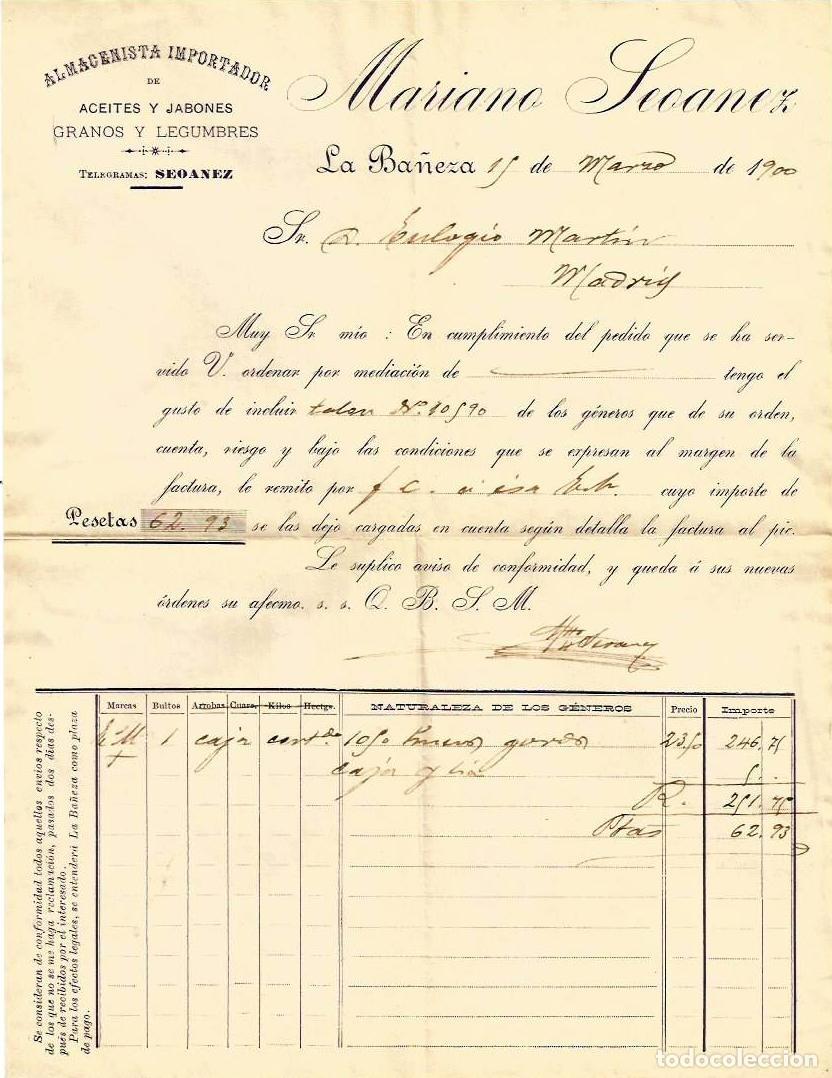 ALMACENISTA IMPORTADOR
DE
ACEITES Y JABONES
GRANOS Y LEGUMBRES
TELEGRAMAS: SEOANEZ
Mariano Seoanez
La Bañeza 15 de Marzo de 1900
Sr. D. Eulogio Martin
Madrid
Muy Sr. mío: En cumplimiento del pedido que se ha ser-
vido V. ordenar por mediación de tengo el
gusto de incluir talon Nº 10590 de los géneros que de su orden,
cuenta, riesgo y bajo las condiciones que se expresan al margen de la
factura, le remito por f c. á esa cuyo importe de
Pesetas 62.93 se las dejo cargadas en cuenta según detalla la factura al pie.
Le suplico aviso de conformidad, y queda á sus nuevas
órdenes su afecmo. s. s. Q. B. S. M.
Mno Seoanez
Marcas Bultos Arrobas Cuars. Kilos Hectgs. NATURALEZA DE LOS GÉNEROS Precio Importe
E M 1 caja contdo 1050 huevos gordos 23.50 246.75
caja y lia 5.
R. 251.75
Ptas 62.93
Se consideran de conformidad todos aquellos envios respecto
de los que no se me haga reclamación, pasados dos dias des-
pués de recibidos por el interesado.
Para los efectos legales, se entenderá La Bañeza como plaza
de pago.
todocoleccion